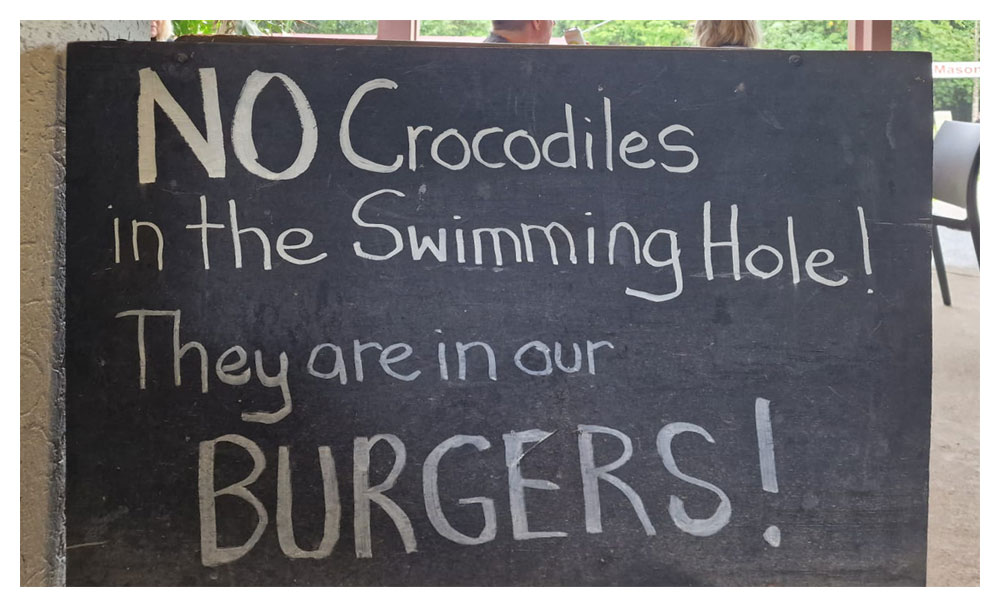 NO Crocodiles
in the Swimming Hole!
They are in our
BURGERS!
Mason